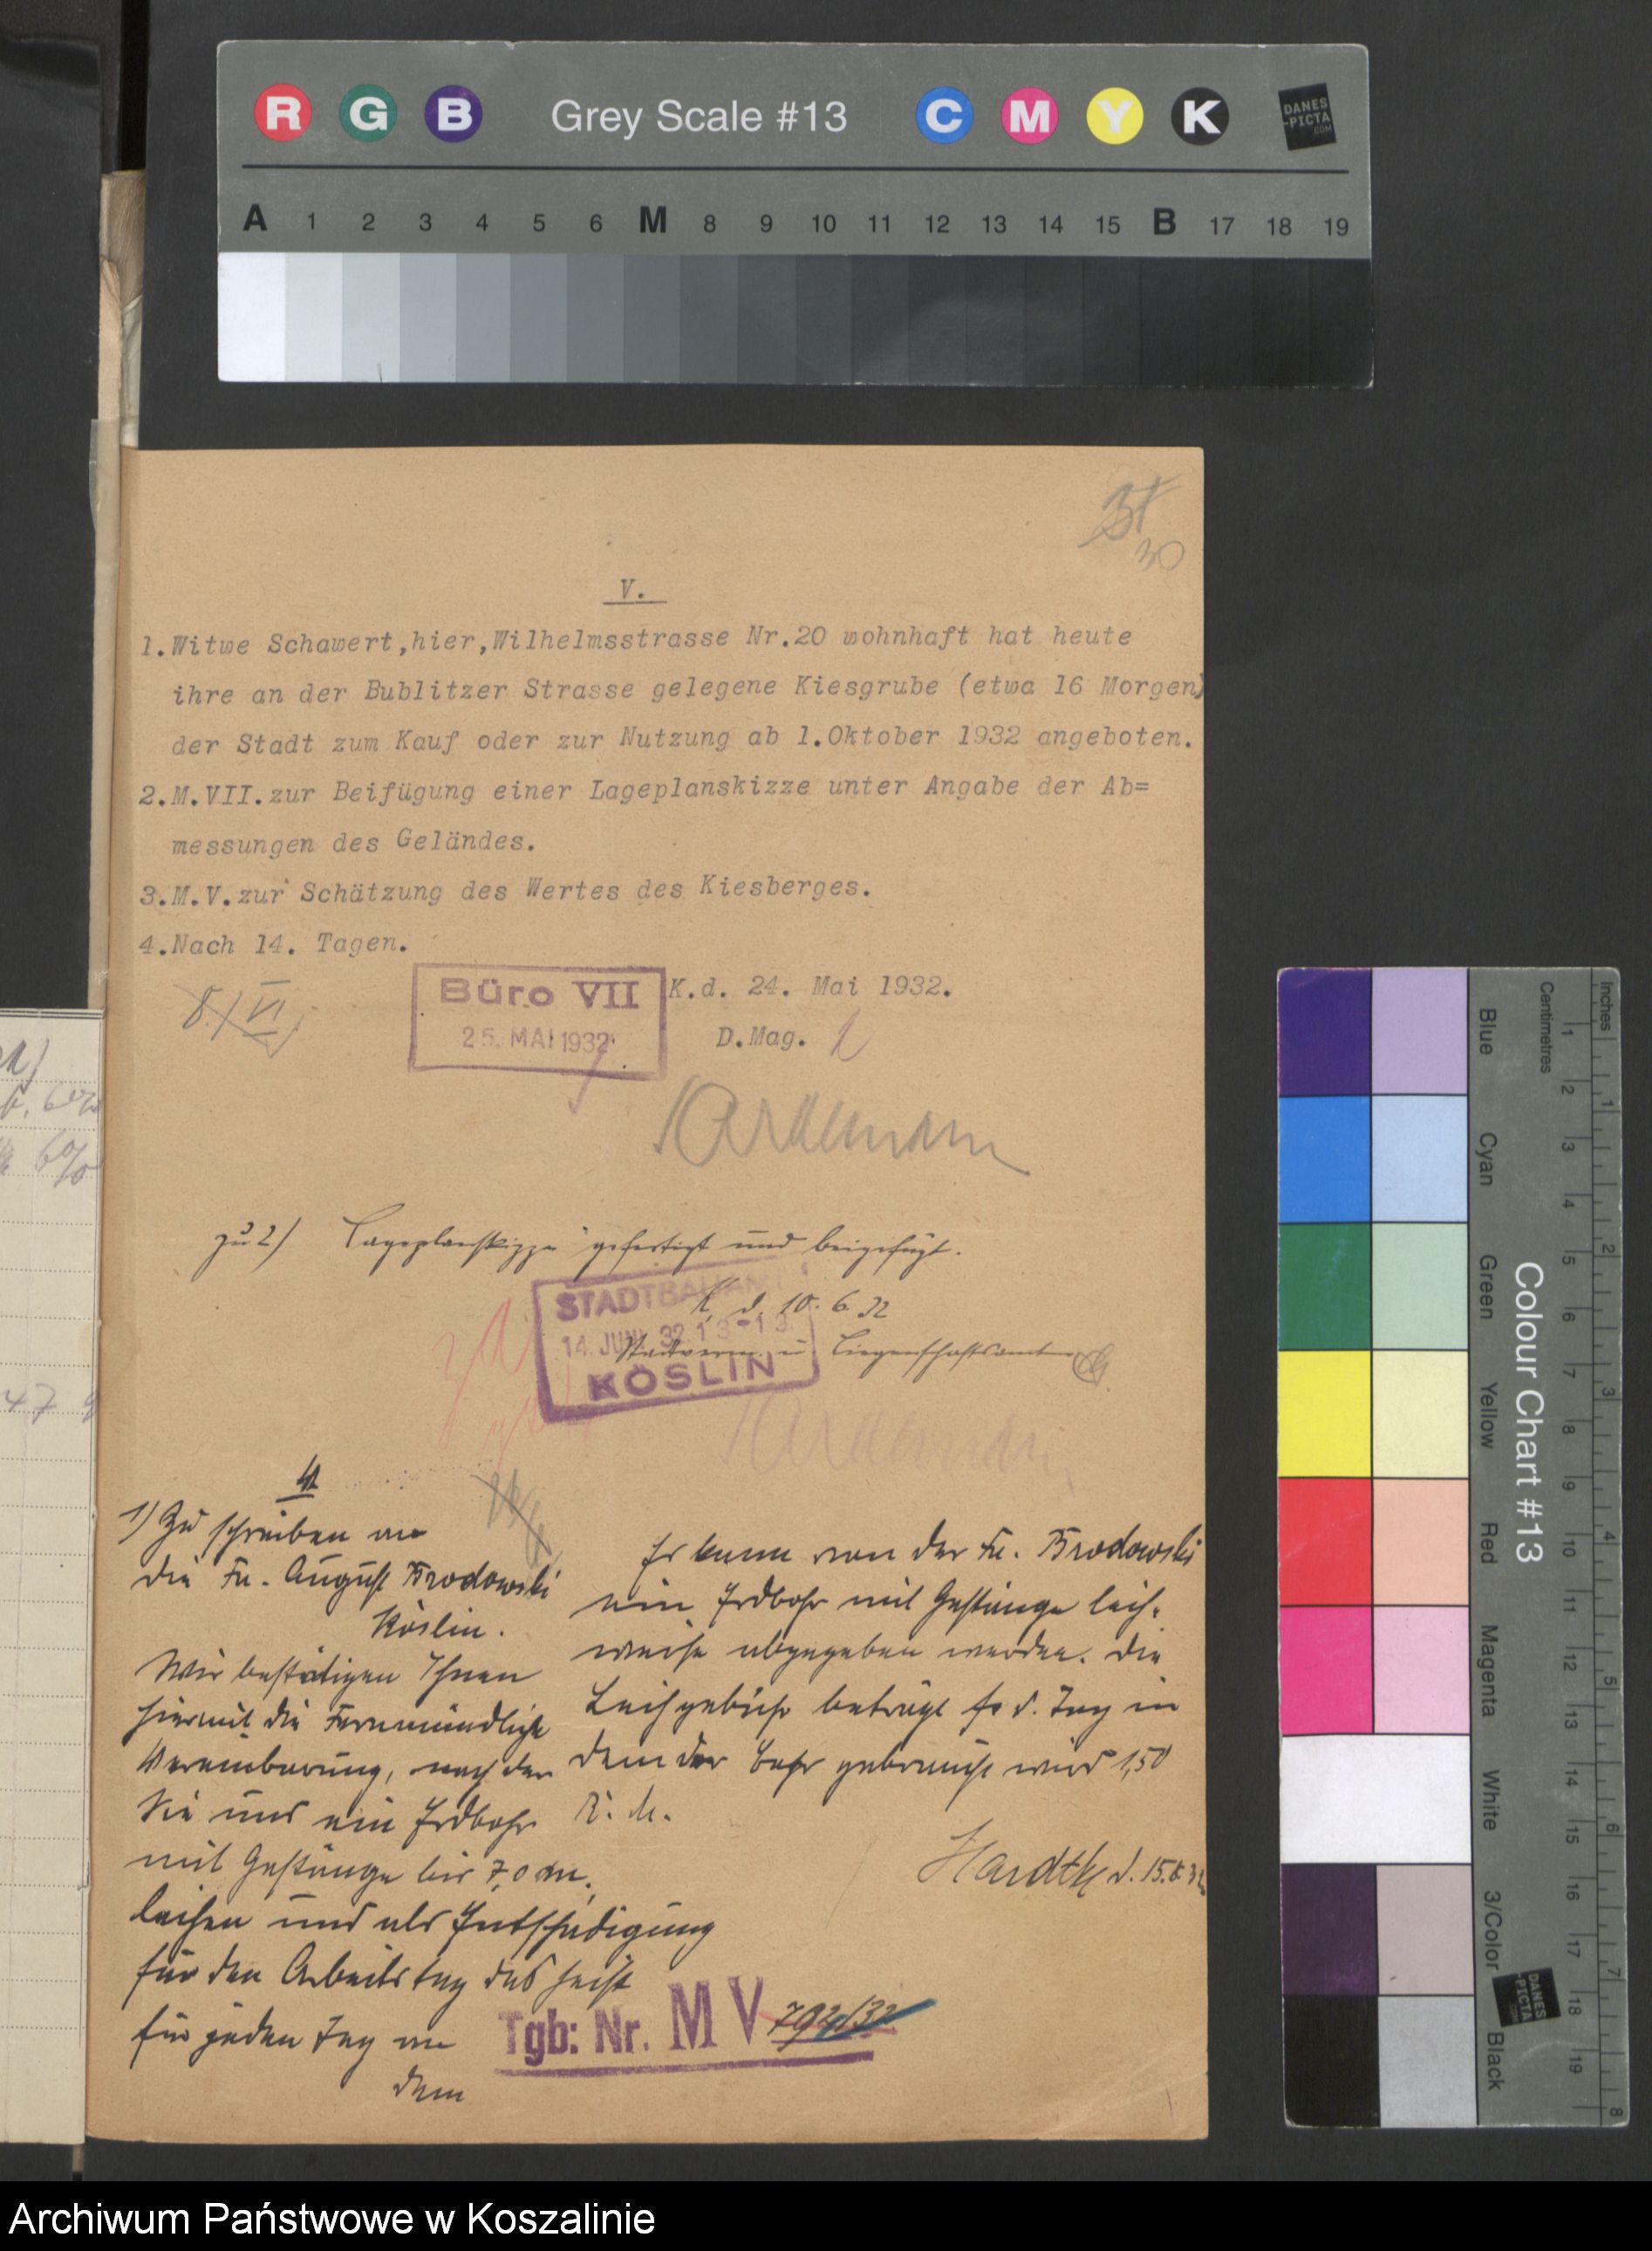 R G B Grey Scale #13 C M Y K DANES-PICTA.COM
A 1 2 3 4 5 6 M 8 9 10 11 12 13 14 15 B 17 18 19
30
V.
1.Witwe Schawert,hier,Wilhelmsstrasse Nr.20 wohnhaft hat heute
ihre an der Bublitzer Strasse gelegene Kiesgrube (etwa 16 Morgen)
der Stadt zum Kauf oder zur Nutzung ab 1.Oktober 1932 angeboten.
2.M.VII.zur Beifügung einer Lageplanskizze unter Angabe der Ab=
messungen des Geländes.
3.M.V.zur Schätzung des Wertes des Kiesberges.
4.Nach 14. Tagen.
8./VI.
Büro VII
25. MAI 1932
K.d. 24. Mai 1932.
D.Mag.
zu 2) Lageplanskizze gefertigt und beigefügt.
K. d. 10. 6. 32
Stadtverm. u. Liegenschaftsamt
STADTBAUAMT
14. JUNI 32.
KÖSLIN
1) Zu schreiben an
die Fa. August Brodowski
Köslin.
Wir bestätigen Ihnen
hiermit die Fernmündliche
Vereinbarung, nach der
Sie uns ein Erdbohr
mit Gestänge bis 7,0 m,
leihen und als Entschädigung
für den Arbeitstag das heißt
für jeden Tag an
dem
Es kann von der Fa. Brodowski
ein Erdbohr mit Gestänge leih-
weise abgegeben werden. Die
Leihgebühr beträgt d. Tag in
dem der Bohr gebraucht wird 1,50
R. M.
Hardtke d. 15.
Tgb: Nr. M V 794/32
Colour Chart #13
Blue Cyan Green Yellow Red Magenta White 3/Color Black
Centimetres 1 2 3 4 5 6 7 8 9 10 11 12 13 14 15 16 17 18 19
Inches 1 2 3 4 5 6 7 8
DANES-PICTA.COM
47
Archiwum Państwowe w Koszalinie